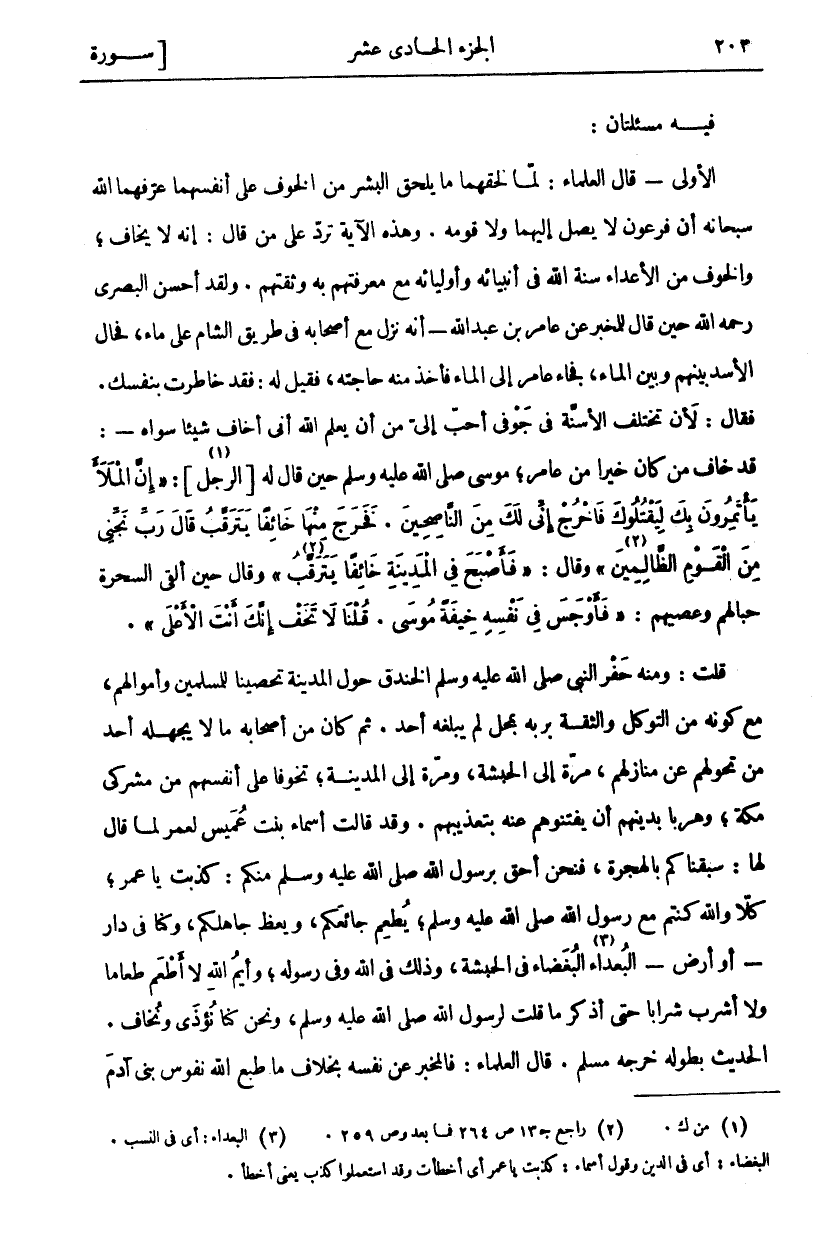 ٢٠٣ الجزء الحادى عشر [ ســورة
فيــه مسئلتان :
الأولى — قال العلماء : لمّا لحقهما ما يلحق البشر من الخوف على أنفسهما عرّفهما الله
سبحانه أن فرعون لا يصل إليهما ولا قومه . وهذه الآية تردّ على من قال : إنه لا يخاف ؛
والخوف من الأعداء سنة الله فى أنبيائه وأوليائه مع معرفتهم به وثقتهم . ولقد أحسن البصرى
رحمه الله حين قال للمخبر عن عامر بن عبدالله — أنه نزل مع أصحابه فى طريق الشام على ماء، فحال
الأسد بينهم وبين الماء، فجاء عامر إلى الماء فأخذ منه حاجته، فقيل له : فقد خاطرت بنفسك.
فقال : لَأن تختلف الأسنّة فى جَوْفى أحبّ إلىّ من أن يعلم الله أنى أخاف شيئا سواه — :
قد خاف من كان خيرا من عامر؛ موسى صلى الله عليه وسلم حين قال له [الرجل](١) : « إِنَّ الْمَلَأَ
يَأْتَمِرُونَ بِكَ لِيَقْتُلُوكَ فَاخْرُجْ إِنِّى لَكَ مِنَ النَّاصِحِينَ . فَخَرَجَ مِنْهَا خَائِفًا يَتَرَقَّبُ قَالَ رَبِّ نَجِّنِى
مِنَ الْقَوْمِ الظَّالِمِينَ(٢) » وقال : « فَأَصْبَحَ فِى الْمَدِينَةِ خَائِفًا يَتَرَقَّبُ(٢) » وقال حين ألقى السحرة
حبالهم وعصيهم : « فَأَوْجَسَ فِى نَفْسِهِ خِيفَةً مُوسَى . قُلْنَا لَا تَخَفْ إِنَّكَ أَنْتَ الْأَعْلَى » .
قلت : ومنه حَفْر النبى صلى الله عليه وسلم الخندق حول المدينة تحصينا للمسلمين وأموالهم،
مع كونه من التوكل والثقــة بربه بمحل لم يبلغه أحد . ثم كان من أصحابه ما لا يجهــله أحد
من تحولهم عن منازلهم ، مرّة إلى الحبشة، ومرّة إلى المدينــة؛ تخوفا على أنفسهم من مشركى
مكة ؛ وهربا بدينهم أن يفتنوهم عنه بتعذيبهم . وقد قالت أسماء بنت عُمَيس لعمر لمــا قال
لها : سبقناكم بالهجرة ، فنحن أحق برسول الله صلى الله عليه وســلم منكم : كذبت يا عمر ؛
كلّا والله كنتم مع رسول الله صلى الله عليه وسلم؛ يُطعِم جائعَكم، ويعظ جاهلكم، وكنا فى دار
— أو أرض — البُعداء(٣) البُغَضاء فى الحبشة، وذلك فى الله وفى رسوله ؛ وأيمُ اللهِ لا أَطْعَم طعاما
ولا أشرب شرابا حتى أذكر ما قلت لرسول الله صلى الله عليه وسلم، ونحن كنا نُؤذَى ونُخاف .
الحديث بطوله خرجه مسلم . قال العلماء : فالمخبر عن نفسه بخلاف ما طبع الله نفوس بنى آدمَ
(١) من ك . (٢) راجع جـ ١٣ ص ٢٦٤ فما بعد وص ٢٥٩ . (٣) البعداء : أى فى النسب .
البغضاء : أى فى الدين وقول أسماء : كذبت يا عمر أى أخطأت وقد استعملوا كذب يعنى أخطأ .